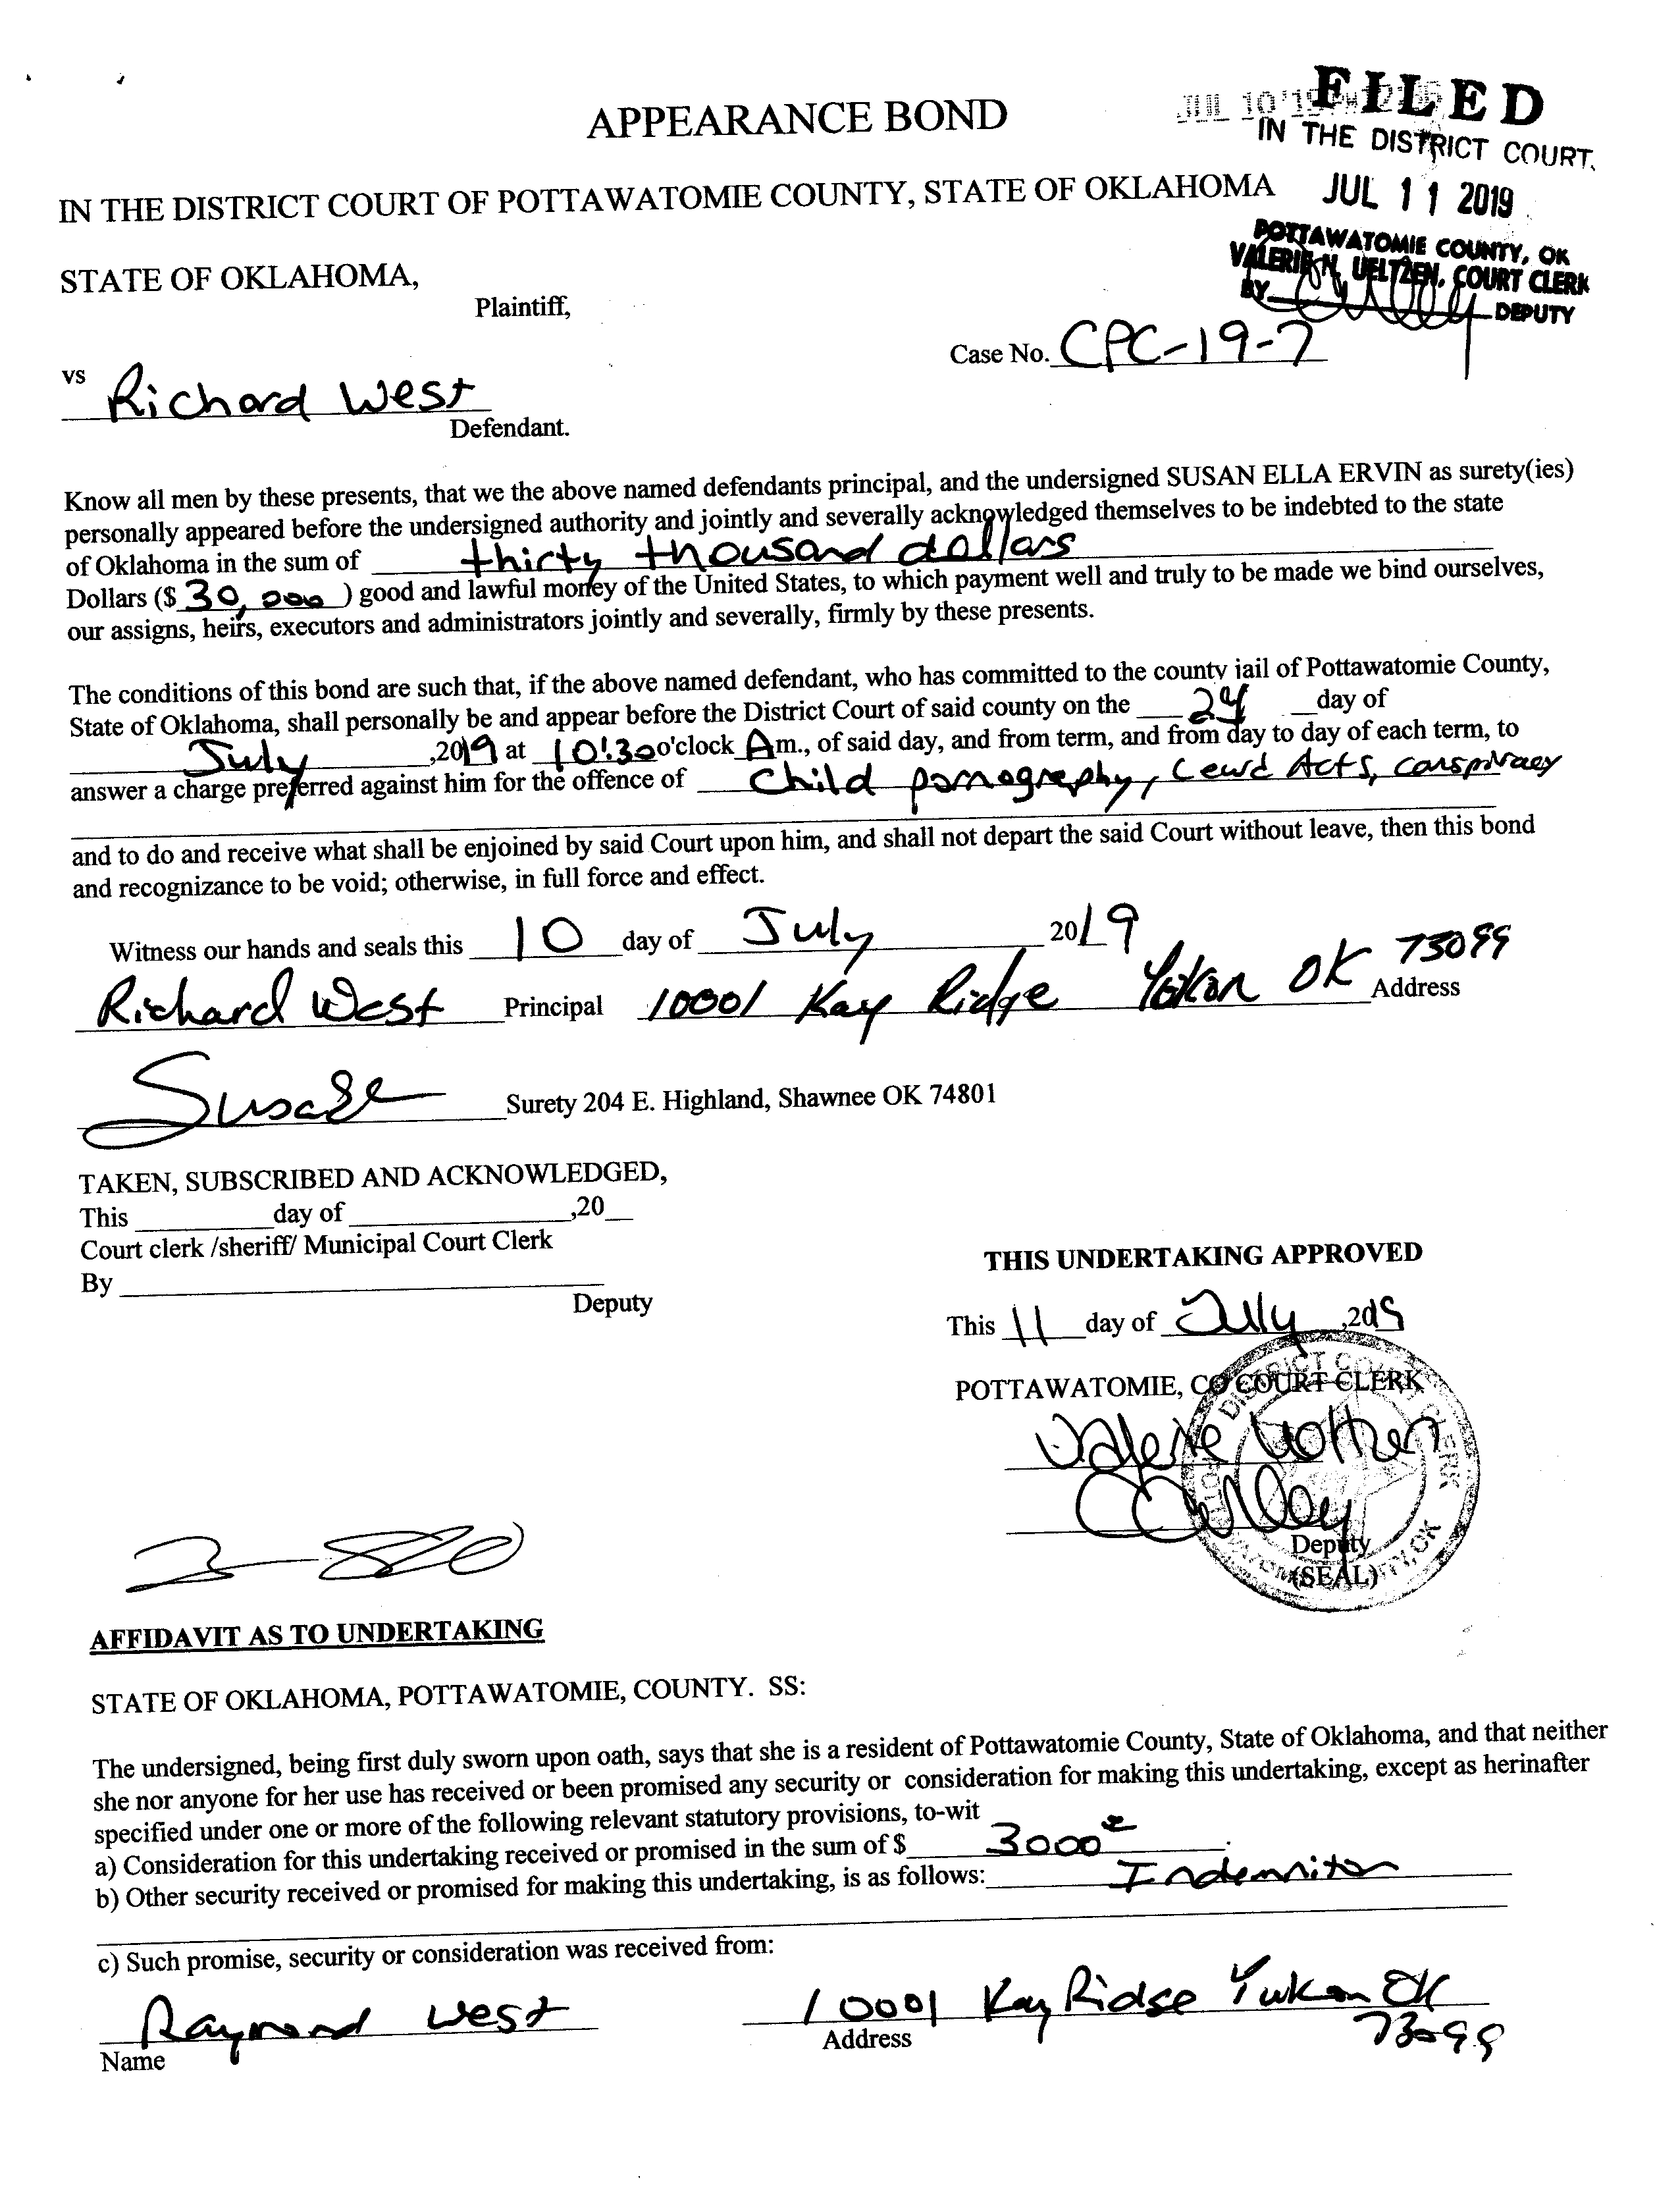 JUL 10'19 PM 12:
FILED
IN THE DISTRICT COURT.
JUL 11 2019
POTTAWATOMIE COUNTY, OK
VALERIE N. UELTZEN, COURT CLERK
BY DEPUTY
APPEARANCE BOND
IN THE DISTRICT COURT OF POTTAWATOMIE COUNTY, STATE OF OKLAHOMA
STATE OF OKLAHOMA,
Plaintiff,
Case No. CPC-19-7
vs
Richard West
Defendant.
Know all men by these presents, that we the above named defendants principal, and the undersigned SUSAN ELLA ERVIN as surety(ies)
personally appeared before the undersigned authority and jointly and severally acknowledged themselves to be indebted to the state
of Oklahoma in the sum of thirty thousand dollars
Dollars ($ 30,000 ) good and lawful money of the United States, to which payment well and truly to be made we bind ourselves,
our assigns, heirs, executors and administrators jointly and severally, firmly by these presents.
The conditions of this bond are such that, if the above named defendant, who has committed to the county jail of Pottawatomie County,
State of Oklahoma, shall personally be and appear before the District Court of said county on the 24 day of
July ,2019 at 10:30 o'clock A m., of said day, and from term, and from day to day of each term, to
answer a charge preferred against him for the offence of Child pornography, Lewd Acts, conspiracy
and to do and receive what shall be enjoined by said Court upon him, and shall not depart the said Court without leave, then this bond
and recognizance to be void; otherwise, in full force and effect.
Witness our hands and seals this 10 day of July 2019
Richard West Principal 10001 Kay Ridge Yukon OK 73099 Address
Surety 204 E. Highland, Shawnee OK 74801
TAKEN, SUBSCRIBED AND ACKNOWLEDGED,
This day of ,20
Court clerk /sheriff/ Municipal Court Clerk
By
Deputy
THIS UNDERTAKING APPROVED
This 11 day of July ,2019
POTTAWATOMIE, CO COURT CLERK
Valerie Ueltzen
Deputy
(SEAL)
AFFIDAVIT AS TO UNDERTAKING
STATE OF OKLAHOMA, POTTAWATOMIE, COUNTY. SS:
The undersigned, being first duly sworn upon oath, says that she is a resident of Pottawatomie County, State of Oklahoma, and that neither
she nor anyone for her use has received or been promised any security or consideration for making this undertaking, except as herinafter
specified under one or more of the following relevant statutory provisions, to-wit
a) Consideration for this undertaking received or promised in the sum of $ 3000
b) Other security received or promised for making this undertaking, is as follows: Indemnitor
c) Such promise, security or consideration was received from:
Raymond West 10001 Kay Ridge Yukon OK
Name Address 73099